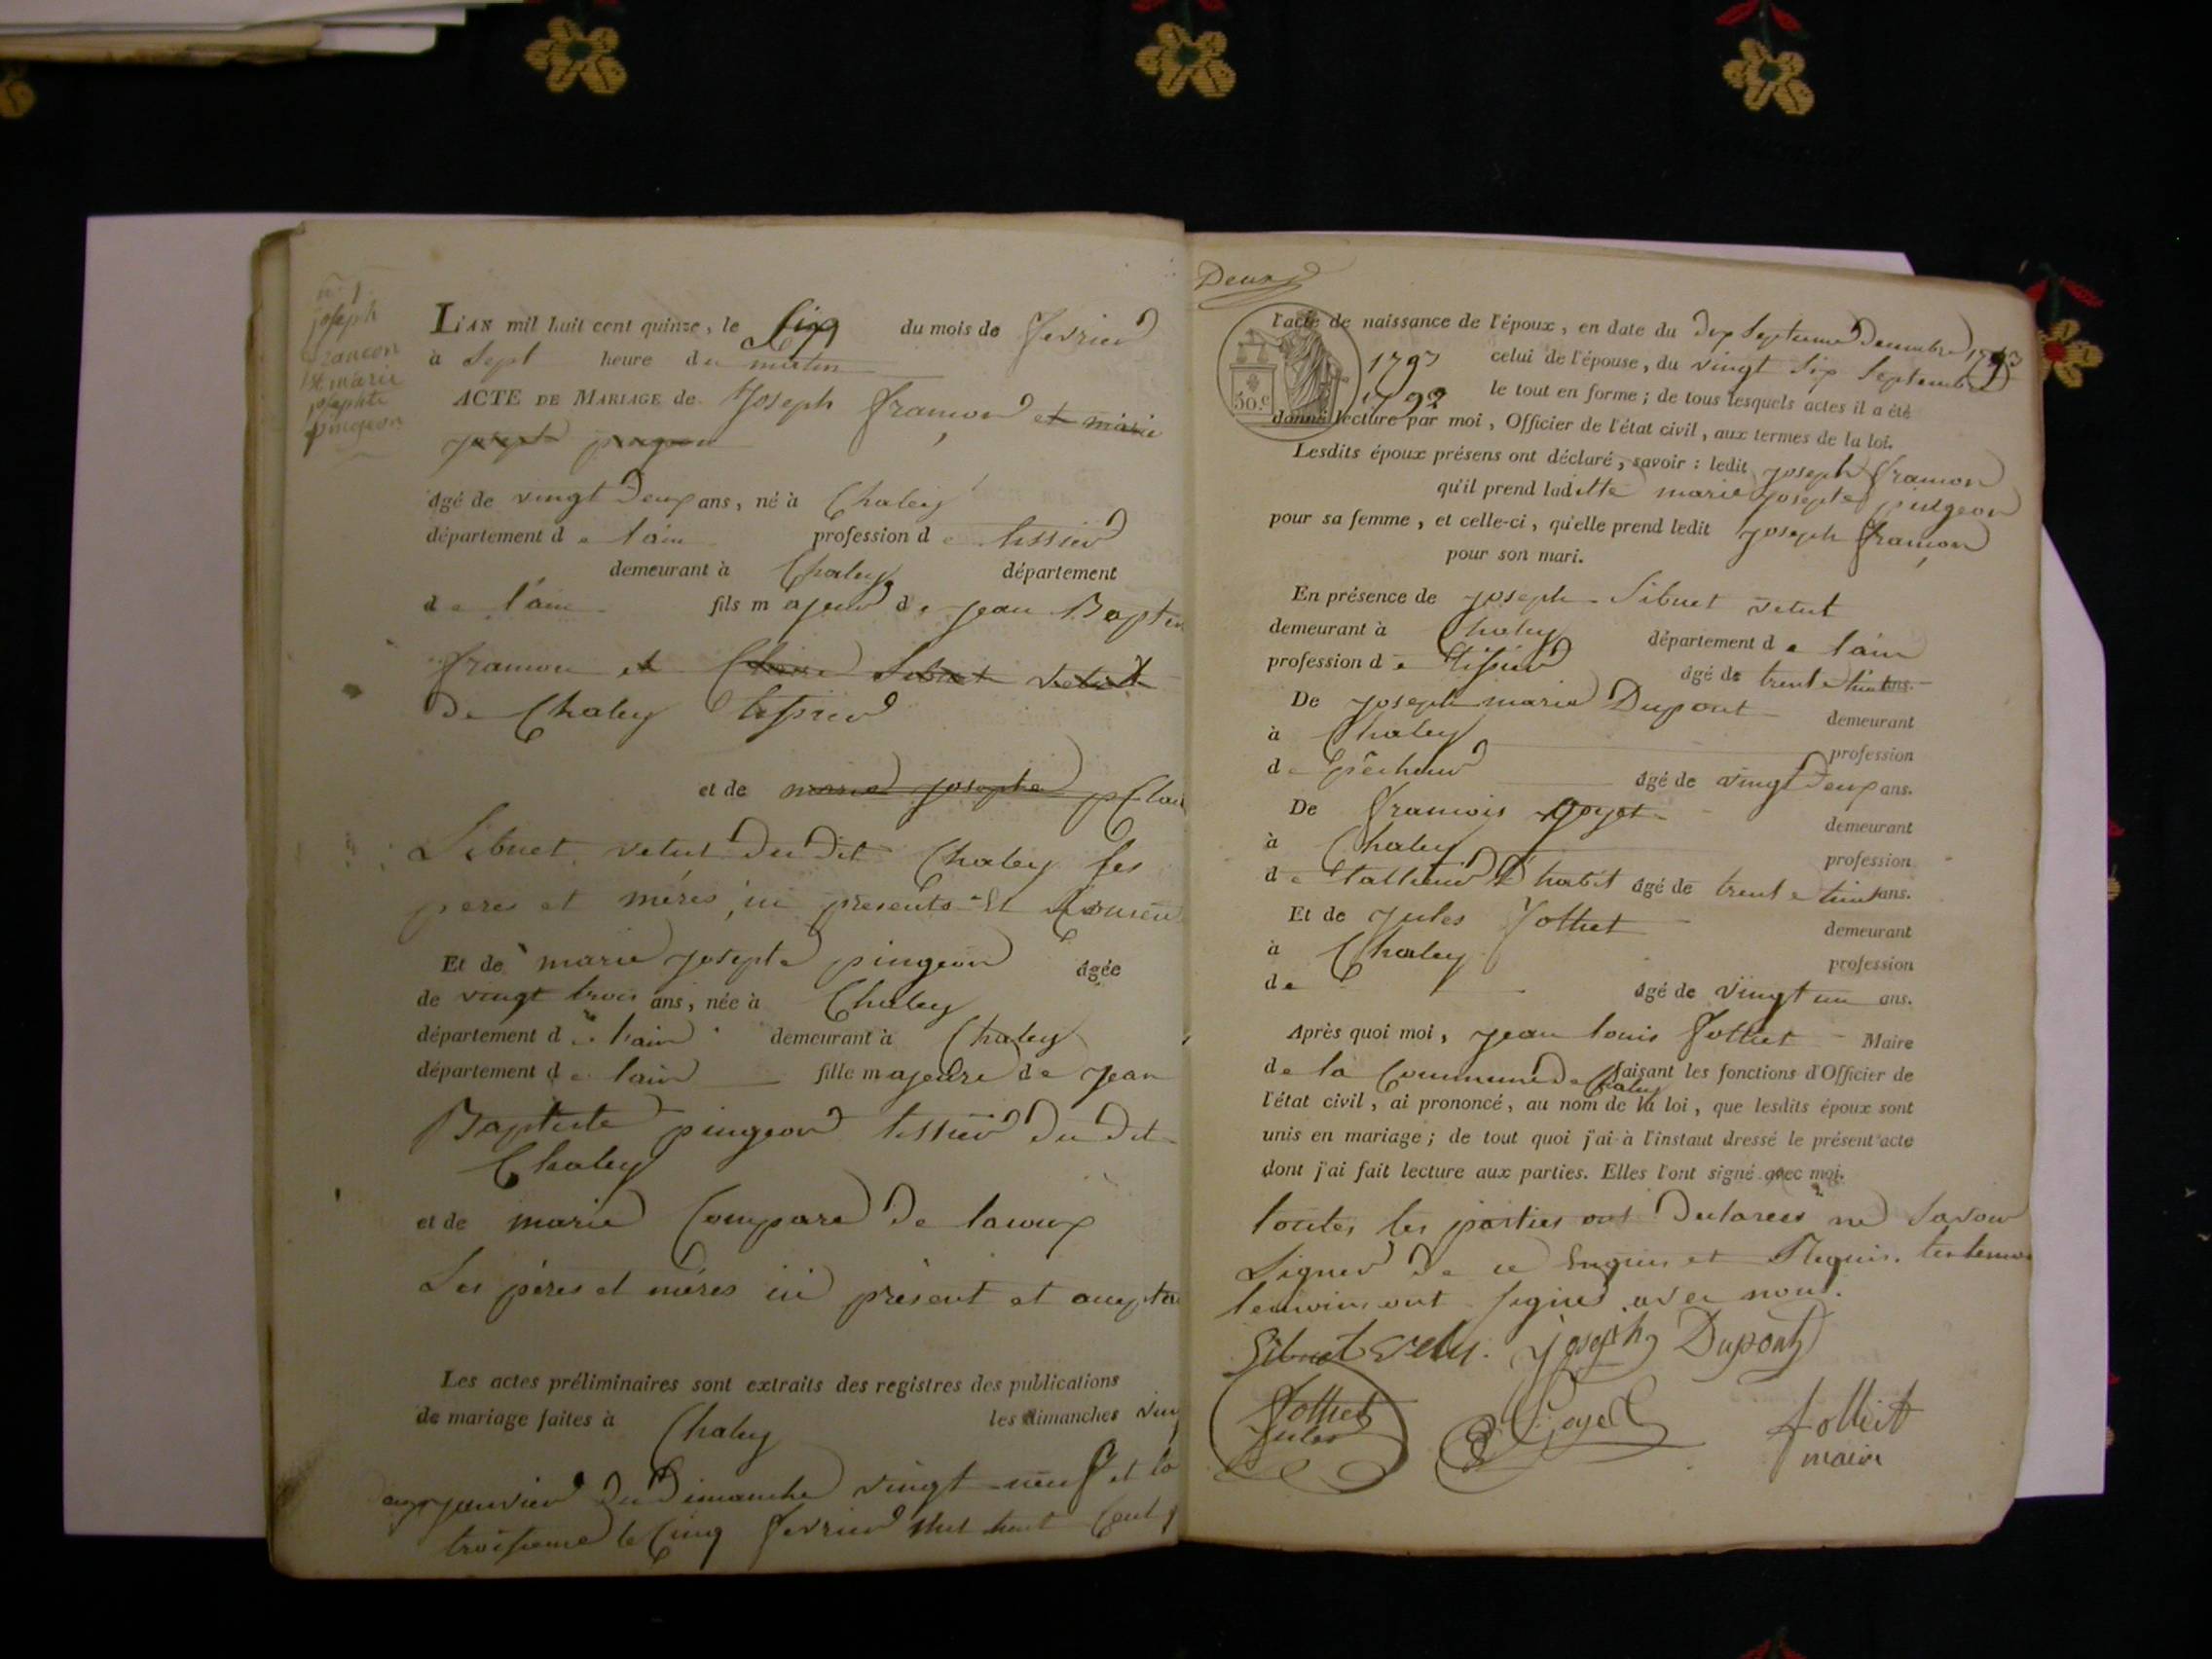 n.º 1
joseph
francon
et marie
josephte
pingeon
L'AN mil huit cent quinze, le Six du mois de fevrier
à Sept heure du matin
ACTE DE MARIAGE de Joseph françon et marie
josepte pingeon
âgé de vingt Deux ans, né à Chaley
département de l'ain profession de tissier
demeurant à Chaley département
de l'ain fils majeur de jean Baptis
françon et Claire Sibuet vetut
De Chaley tissier
et de marie josepte Clai
Sibuet vetut Du Dit Chaley ses
peres et méres, ici presents et
Et de marie josepte pingeon âgée
de vingt trois ans, née à Chaley
département de l'ain demeurant à Chaley
département de lain fille majeure de jean
Baptiste pingeon tissier Du Dit
Chaley
et de marie Compare De lacoux
Ses péres et méres ici présent et accepta
Les actes préliminaires sont extraits des registres des publications
de mariage faites à Chaley les dimanches vin
janvier Du Dimanche vingt neuf et la
troisieme le Cinq fevrier mil huit Cent
Deux
50.c
l'acte de naissance de l'époux, en date du dix Septieme Decembre 1793
1793 celui de l'épouse, du vingt Six Septembre
1792 le tout en forme ; de tous lesquels actes il a été
donné lecture par moi, Officier de l'état civil, aux termes de la loi.
Lesdits époux présens ont déclaré, savoir : ledit joseph françon
qu'il prend ladite marie josepte pingeon
pour sa femme, et celle-ci, qu'elle prend ledit joseph françon
pour son mari.
En présence de joseph Sibuet vetut
demeurant à Chaley département de l'ain
profession de tissier âgé de trente huit ans.
De joseph marie Dupont demeurant
à Chaley profession
de pêcheur âgé de vingt Deux ans.
De francois goyet demeurant
à Chaley profession
de tallieur D'habit âgé de trente huit ans.
Et de jules Jolliet demeurant
à Chaley profession
de âgé de vingt un ans.
Après quoi moi, jean louis Jolliet Maire
de la Commune De Chaley faisant les fonctions d'Officier de
l'état civil, ai prononcé, au nom de la loi, que lesdits époux sont
unis en mariage ; de tout quoi j'ai à l'instant dressé le présent acte
dont j'ai fait lecture aux parties. Elles l'ont signé avec moi.
toutes les parties ont Declarees ne Savoir
Signer De ce Enquis et Requis. les temoi
temoins ont signes avec nous.
Sibuet vetut. joseph Dupont
Jolliet
jules
goyet
Jolliet
maire